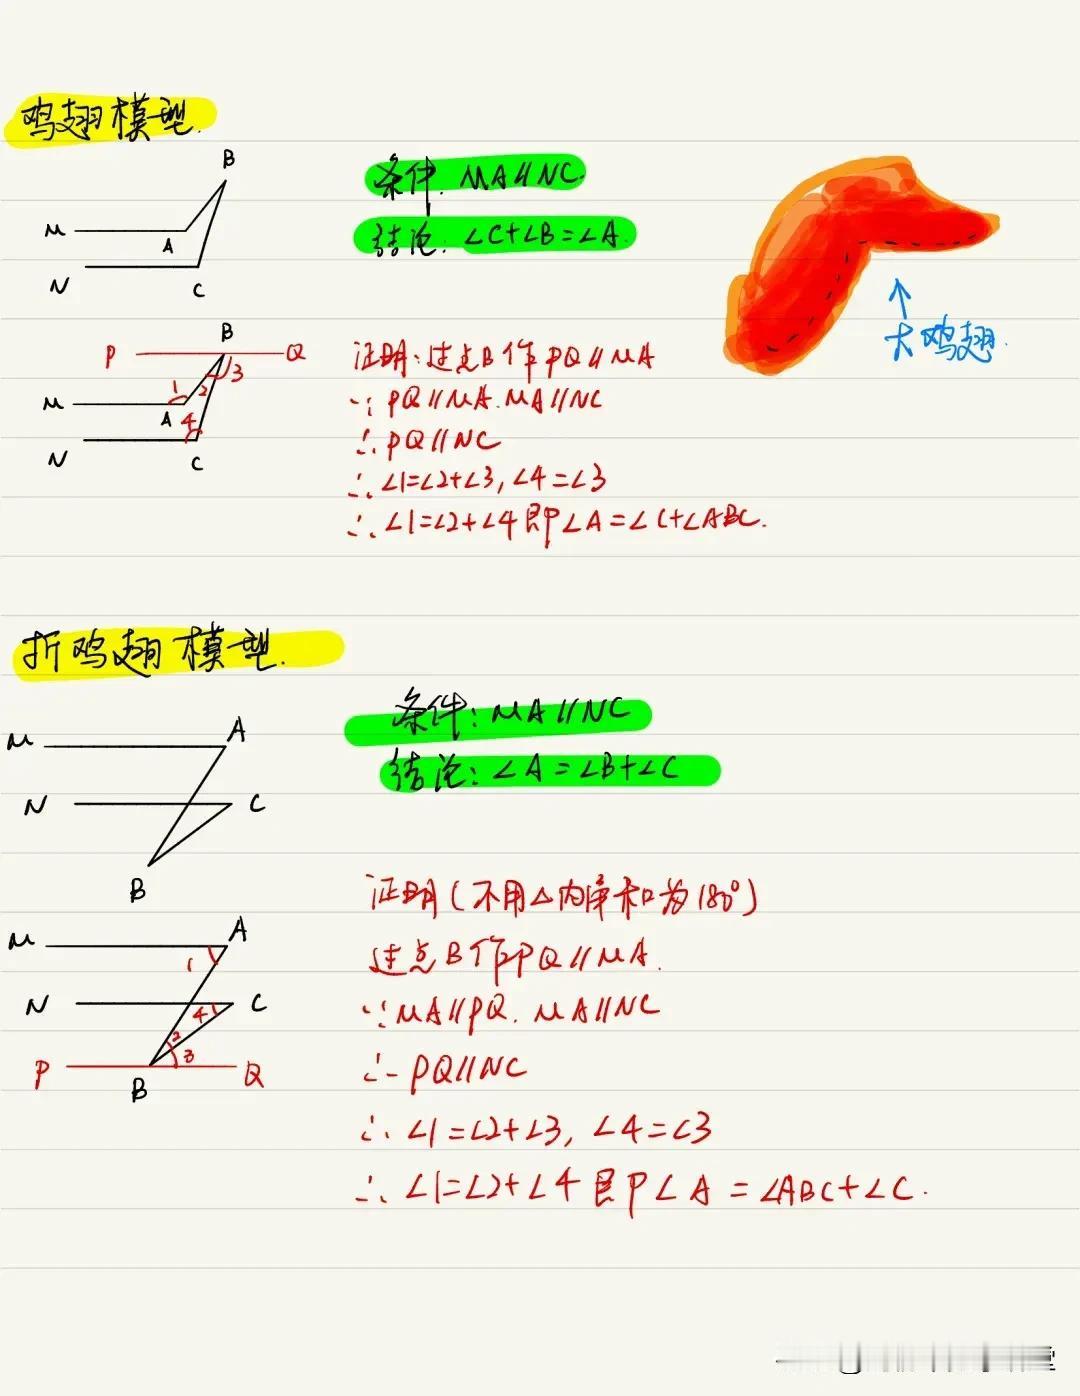 鸡翅模型.
B
M
A
N
C
条件. MA∥NC.
结论. ∠C+∠B=∠A.
大鸡翅.
B
P
Q
3
1
2
M
A
4
N
C
证明:过点B作PQ∥MA
∵PQ∥MA.MA∥NC
∴PQ∥NC
∴∠1=∠2+∠3,∠4=∠3
∴∠1=∠2+∠4即∠A=∠C+∠ABC.
折鸡翅模型.
M
A
N
C
B
条件:MA∥NC
结论:∠A=∠B+∠C
M
A
1
N
4
C
2
3
P
B
Q
证明(不用△内角和为180°)
过点B作PQ∥MA.
∵MA∥PQ.MA∥NC
∴PQ∥NC
∴∠1=∠2+∠3,∠4=∠3
∴∠1=∠2+∠4即∠A=∠ABC+∠C.